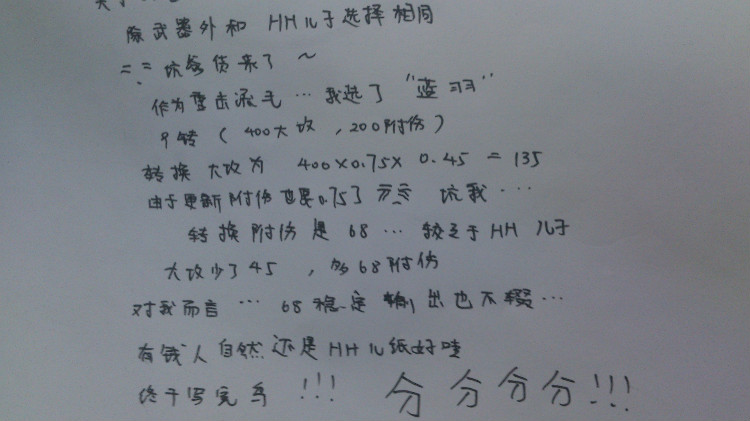 除武器外和 HH儿子选择相同
=.= 坑爹货来了 ~
作为重击流毛 … 我选了 "蓝羽"
9转 ( 400大攻 , 200附伤 )
转换 大攻为 400×0.75× 0.45 = 135
由于更新附伤也要0.75了 坑我 …
转换 附伤 是 68 … 较之于 HH 儿子
大攻少了 45 , 多68附伤
对我而言 … 68 稳定 输出也不错…
有钱人 自然 还是 HH儿纸好哇
终于写完 !!! 分 分 分 分 !!!